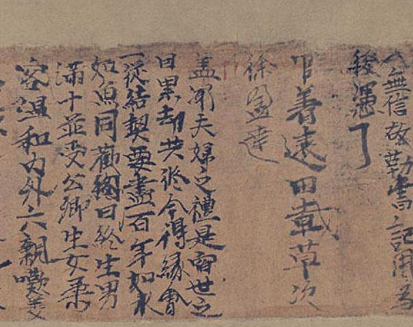 人無信故勒書記用為
後憑
善遠田載草次
盖聞夫婦之禮是宿世之
因累劫共修今得緣會
一從結契要盡百年如水
如魚同歡終日生男
滿十並受公卿生女柔
容温和内外六親歡美